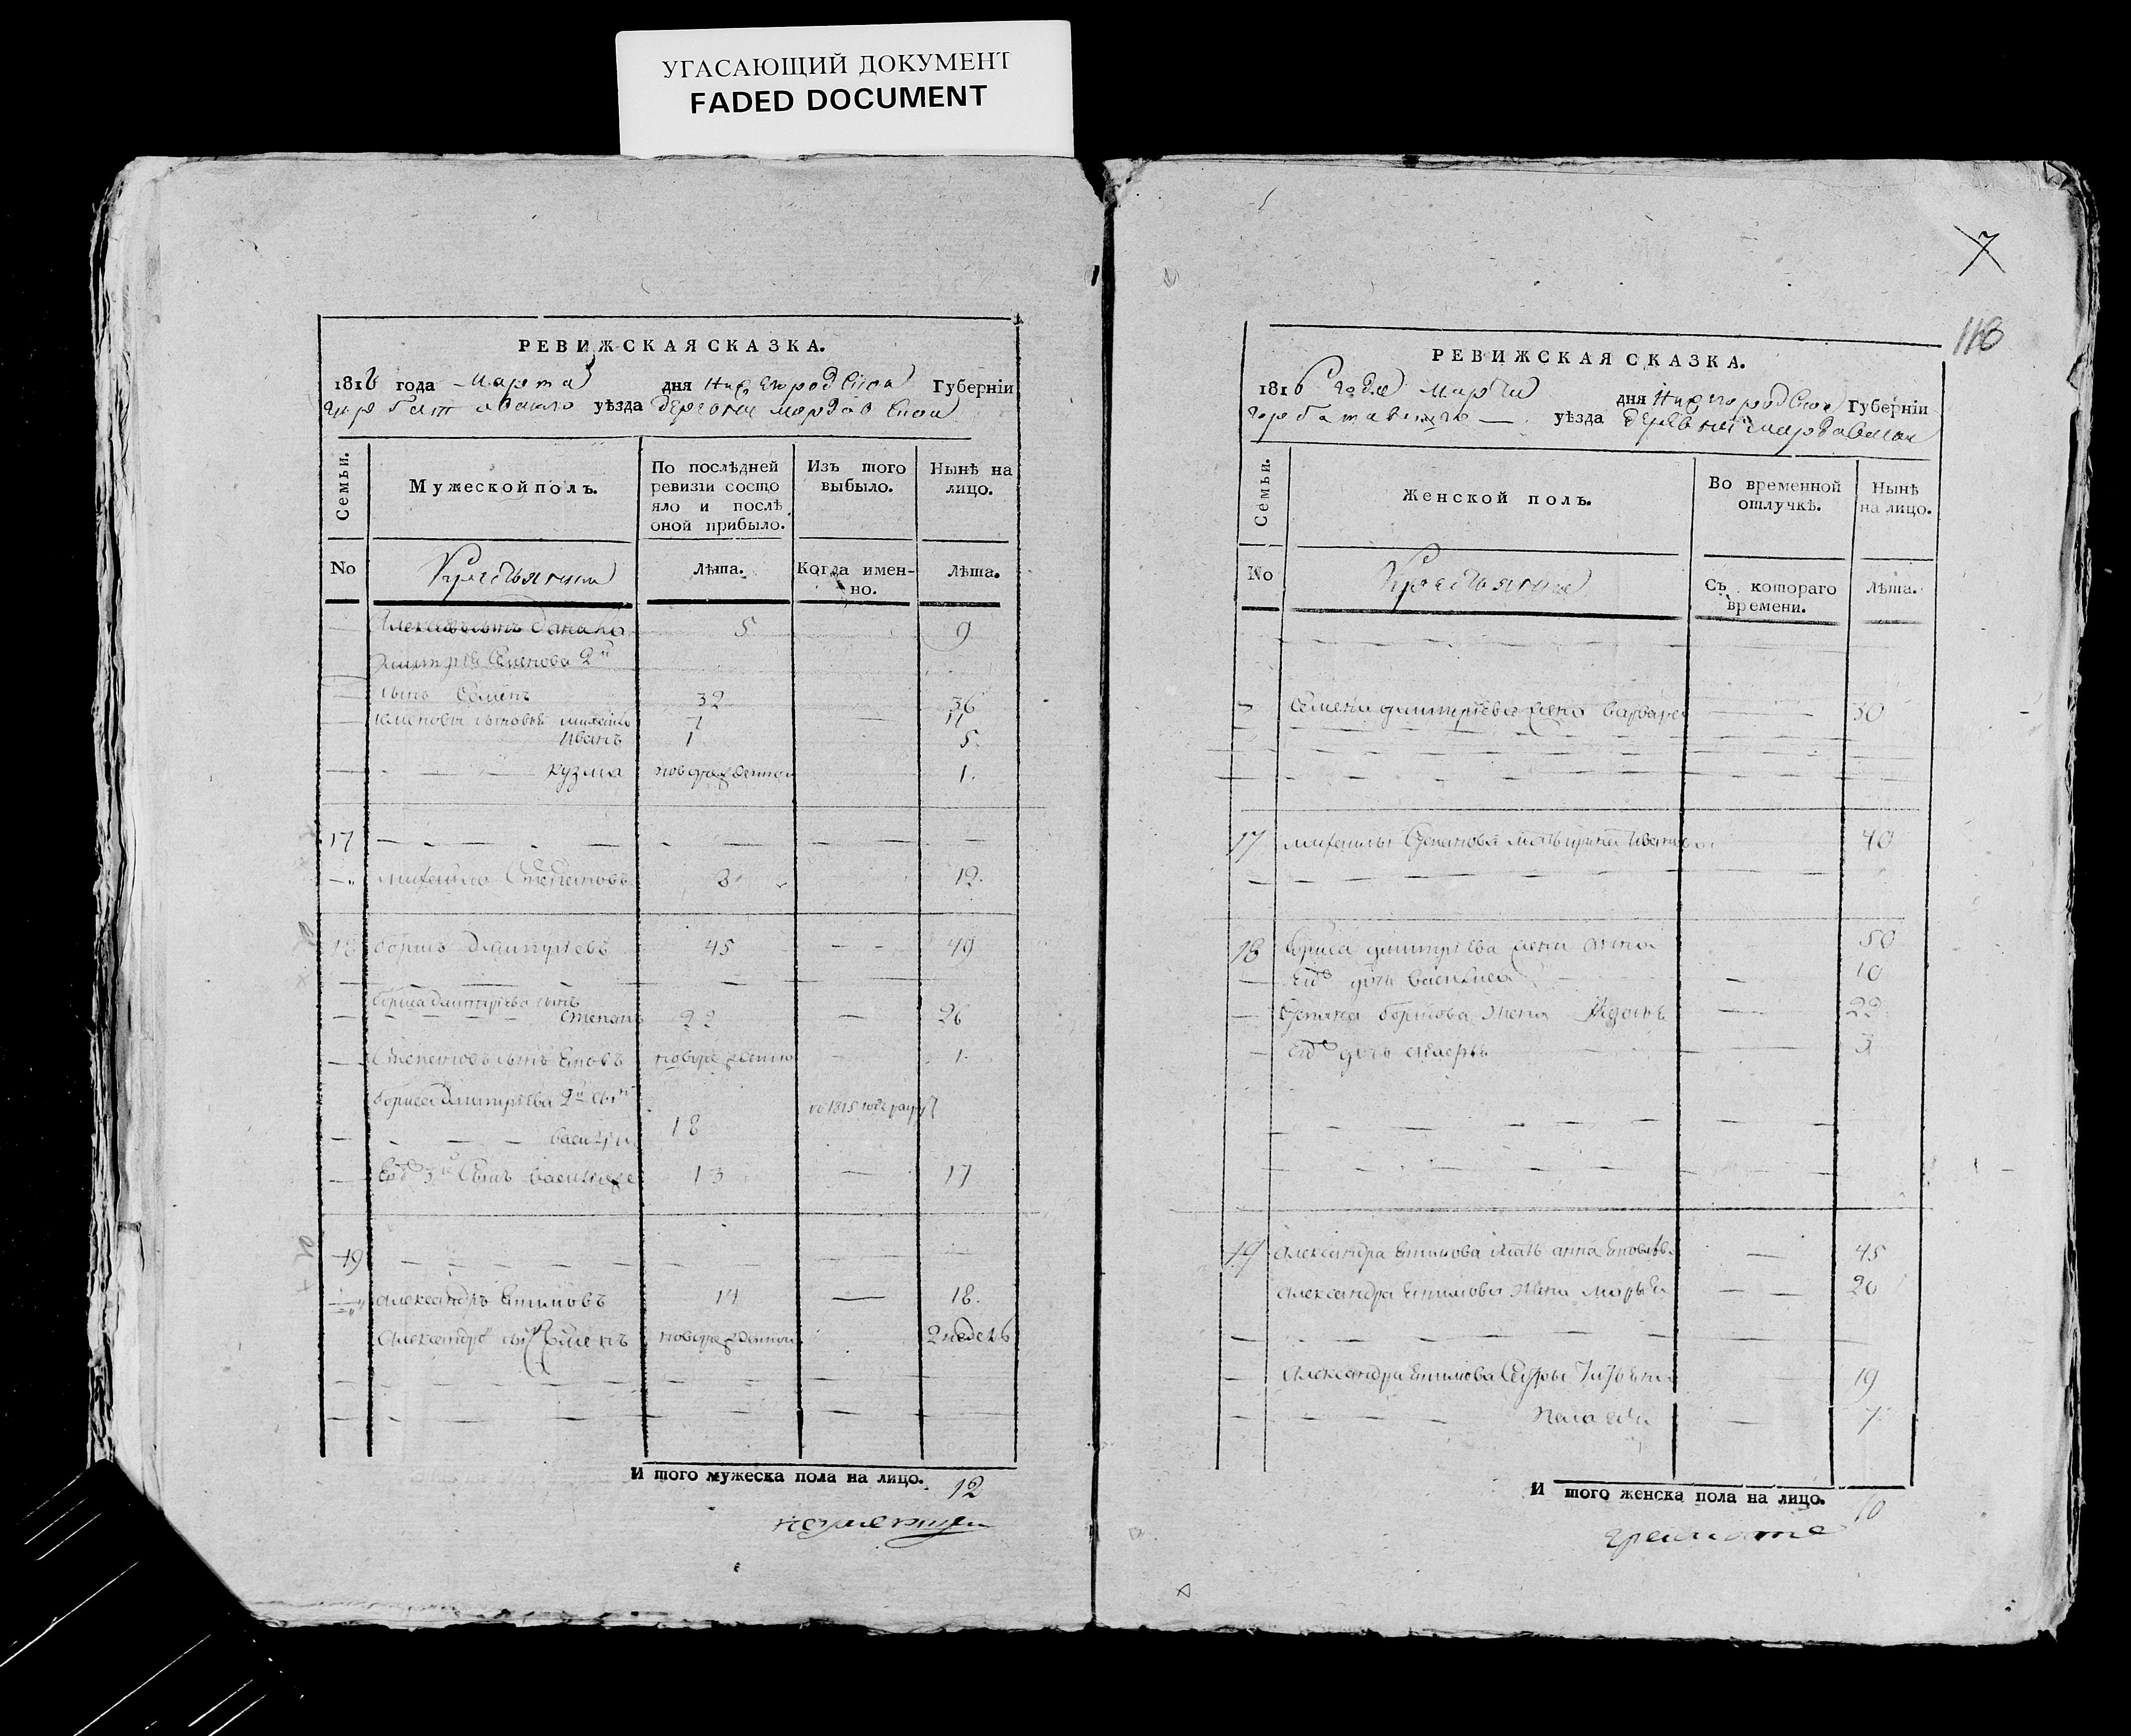 УГАСАЮЩИЙ ДОКУМЕНТ
FADED DOCUMENT
РЕВИЖСКАЯ СКАЗКА.
1816 года Марта дня Нижегородской Губерніи
горбатовского уѣзда деревни мордовской
Семьи.
Мужеской полъ.
По послѣдней ревизіи состояло и послѣ оной прибыло.
Изъ того выбыло.
Нынѣ на лицо.
No
Крестьяния
Лѣта.
Когда именно.
Лѣта.
5 9
Дмитрія Семенова 2й
сынъ Семенъ 32 36
Семеновы сыновья михаило 7 11
Иванъ 1 5
кузма новорожденной 1.
17
михайло Степановъ 8 12.
18 борисъ дмитріевъ 45 49
бориса дмитріева сынъ
степанъ 22 26
Степановъ сынъ новорожденной 1.
бориса дмитріева 2й сынъ
18 въ 1815 годе
Его 3й сынъ василиѣ 13 17
19
александръ Ефимовъ 14 18.
александръ сынъ Семенъ новорожденной 2 недель
И того мужеска пола на лицо. 12
неумеющей
7
118
РЕВИЖСКАЯ СКАЗКА.
1816 года марта дня Нижегородской Губерніи
горбатовского уѣзда деревни мордовской
Семьи.
Женской полъ.
Во временной отлучкѣ.
Нынѣ на лицо.
No
Крестьяния
Съ котораго времени.
Лѣта.
Семена дмитріева жена варвара 30
17 михаилы Степанова мать ирина иванова 40
18 бориса дмитріева жена анна 50
Его дочь василиса 10
Степана борисова жена 22
Его дочь 3
19 александра Ефимова мать анна 45
александра Ефимова жена марья 20
александра Ефимова сестры татьяна 19
7
И того женска пола на лицо. 10
грамоте